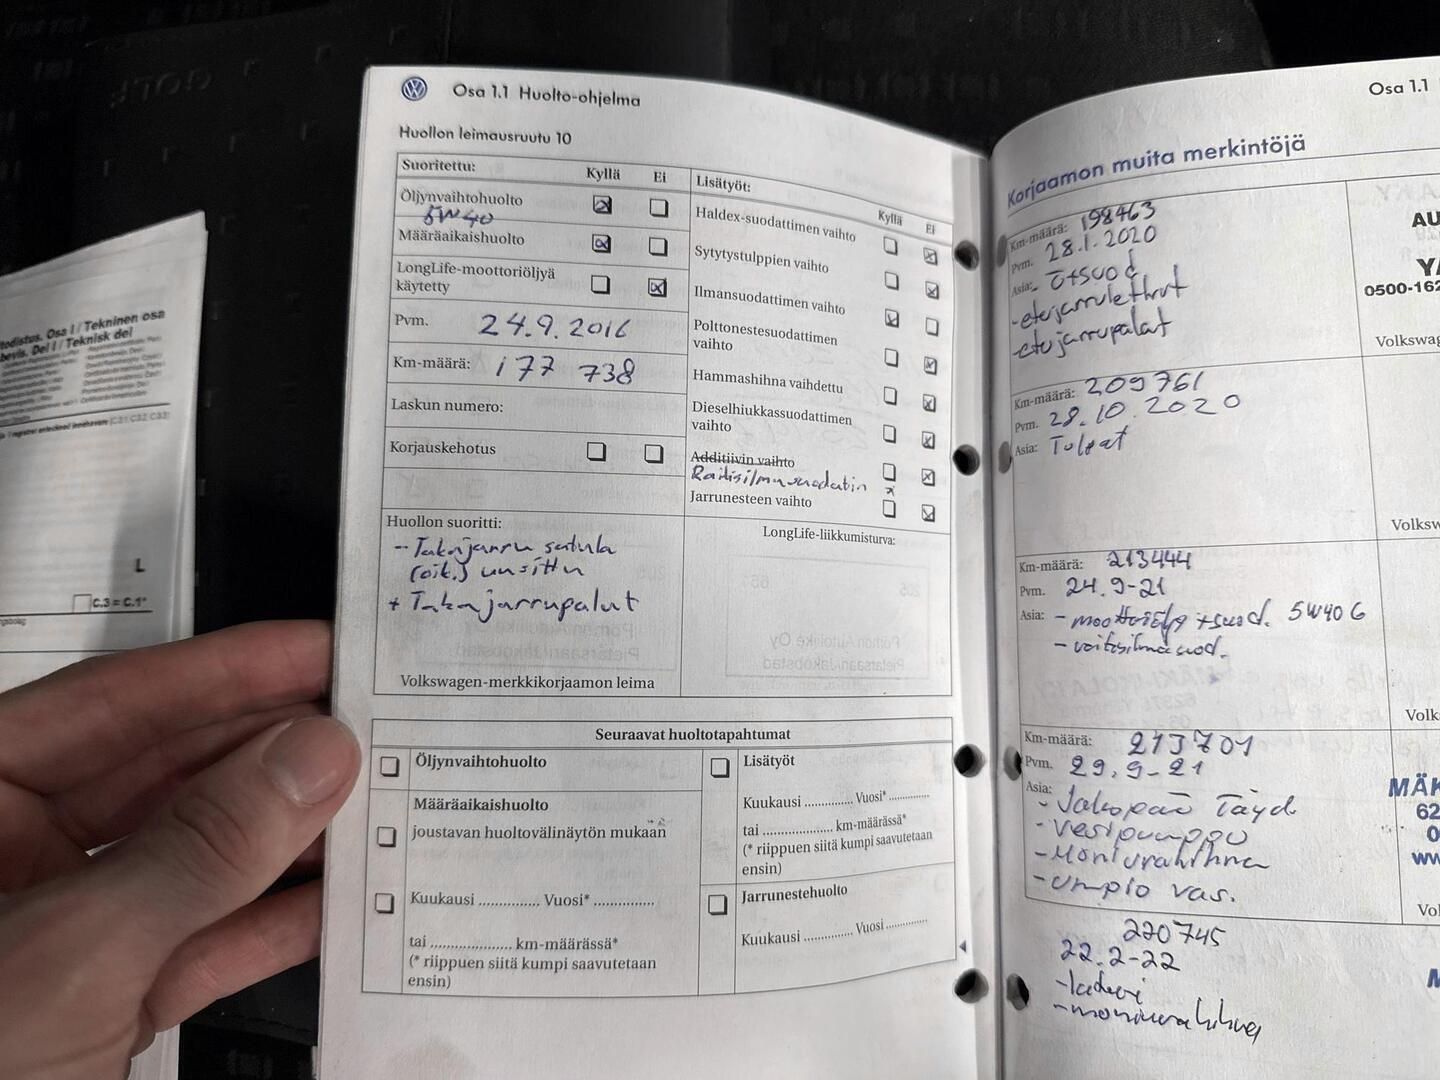 GOLF
todistus. Osa I / Tekninen osa
bevis. Del I / Teknisk del
L
C.3 = C.1*
Osa 1.1 Huolto-ohjelma
Huollon leimausruutu 10
Suoritettu: Kyllä Ei
Öljynvaihtohuolto
5W40
Määräaikaishuolto
LongLife-moottoriöljyä
käytetty
Pvm. 24.9.2016
Km-määrä: 177 738
Laskun numero:
Korjauskehotus
Huollon suoritti:
- Takajarru satula
(oik.) uusittu
+ Takajarrupalat
Volkswagen-merkkikorjaamon leima
Lisätyöt: Kyllä Ei
Haldex-suodattimen vaihto
Sytytystulppien vaihto
Ilmansuodattimen vaihto
Polttonestesuodattimen
vaihto
Hammashihna vaihdettu
Dieselhiukkassuodattimen
vaihto
Additiivin vaihto
Raitisilmasuodatin
Jarrunesteen vaihto
LongLife-liikkumisturva:
Seuraavat huoltotapahtumat
Öljynvaihtohuolto
Määräaikaishuolto
joustavan huoltovälinäytön mukaan
Kuukausi .............. Vuosi* ..............
tai .................... km-määrässä*
(* riippuen siitä kumpi saavutetaan
ensin)
Lisätyöt
Kuukausi ............. Vuosi* ...........
tai .................... km-määrässä*
(* riippuen siitä kumpi saavutetaan
ensin)
Jarrunestehuolto
Kuukausi ............. Vuosi ............
Osa 1.1
Korjaamon muita merkintöjä
Km-määrä: 198463
Pvm. 28.1.2020
Asia: - Ö+suod
- etujarrulevyt
- etujarrupalat
AU
0500-162
Volkswag
Km-määrä: 209761
Pvm. 28.10.2020
Asia: Tulpat
Volksw
Km-määrä: 213444
Pvm. 24.9-21
Asia: - moottoriöljy +suod. 5W40 G
- raitisilmasuod.
Volk
Km-määrä: 213701
Pvm. 29.9-21
Asia: - Jakopää Täyd.
- vesipumppu
- Moniurahihna
- umpio vas.
MÄK
62
0
ww
Vol
220745
22.2-22
- laturi
- moniurahihna
M